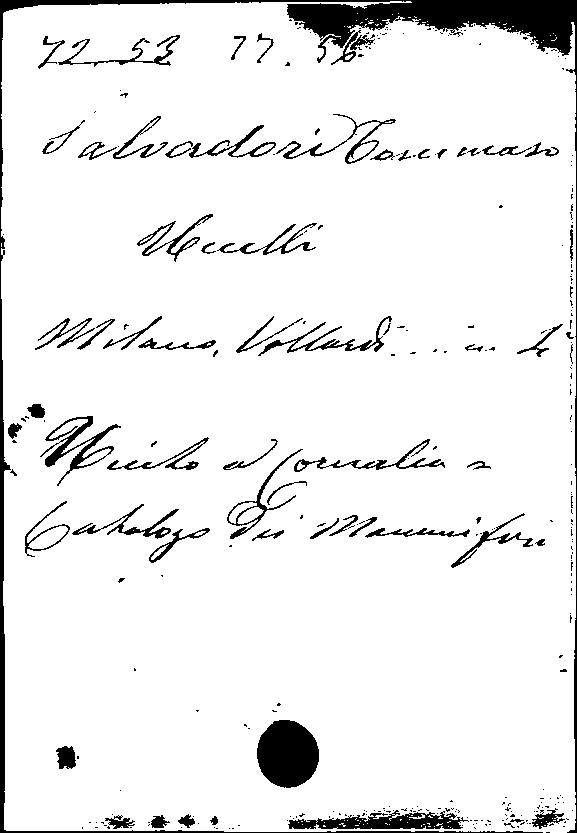 72. 53 77. 56
Salvadori Tommaso
Uccelli
Milano, Vallardi .... in 4°
Unito a Cornalia =
Catalogo dei Mammiferi